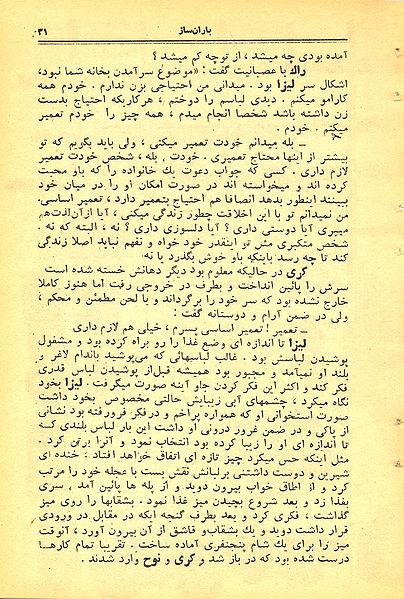 باران‌ساز
۳۱
آمده بودی چه میشد ، از توچه کم میشد ؟
راك با عصبانیت گفت : «موضوع سرآمدن بخانه شما نبود،
اشکال سر لیزا بود . میدانی من احتیاجی بزن ندارم . خودم همه
کارامو میکنم . دیدی لباسم را دوختم ، هرکاریکه احتیاج بدست
زن داشته باشد شخصا انجام میدم ، همه چیز را خودم تعمیر
میکنم . خودم .
ــ بله میدانم خودت تعمیر میکنی ، ولی باید بگویم که تو
بیشتر از اینها محتاج تعمیری . خودت ، بله ، شخص خودت تعمیر
لازم داری . کسی که جواب دعوت یك خانواده را که باو محبت
کرده اند و میخواسته اند در صورت امکان او را در میان خود
ببینند اینطور بدهد انصافا هم احتیاج بتعمیر دارد ، تعمیر اساسی.
من نمیدانم تو با این اخلاقت چطور زندگی میکنی ، آیا ازآن لذت هم
میبری آیا دوستی داری ؟ آیا دلسوزی داری ؟ نه ، البته که نه .
شخص متکبری مثل تو اینقدر خود خواه و نفهم نباید اصلا زندگی
کند تا چه رسد باینکه باو خوش بگذرد یا نه
گری در حالیکه معلوم بود دیگر دهانش خسته شده است
سرش را پائین انداخت و بطرف در خروجی رفت اما هنوز کاملا
خارج نشده بود که سر خود را برگرداند و با لحن مطمئن و محکم ،
ولی در ضمن آرام و دوستانه گفت :
ــ تعمیر ! تعمیر اساسی پسرم ، خیلی هم لازم داری
لیزا تا اندازه ای وضع غذا را رو براه کرده بود و مشغول
پوشیدن لباسش بود . غالب لباسهائی که می‌پوشید باندام لاغر و
بلند او نمیآمد و مجبور بود همیشه قبل از پوشیدن لباس قدری
فکر کند و اکثر این فکر کردن جلو آینه صورت میگرفت . لیزا بخود
نگاه میکرد ، چشمهای آبی زیبایش حالتی مخصوص بخود داشت
صورت استخوانی او که همواره پراخم و درفکر فرورفته بود نشانی
از پاکی و در ضمن غرور درونی او داشت این بار لباس بلندی که
تا اندازه ای او را زیبا کرده بود انتخاب نمود و آنرا برتن کرد .
مثل اینکه حس میکرد چیز تازه ای اتفاق خواهد افتاد ، خنده ای
شیرین و دوست داشتنی برلبانش نقش بست با عجله خود را مرتب
کرد و از اطاق خواب بیرون دوید و از پله ها پائین آمد . سری
بغذا زد و بعد شروع بچیدن میز غذا نمود . بشقابها را روی میز
گذاشت ، فکری کرد و بعد بطرف گنجه ایکه در مقابل در ورودی
قرار داشت دوید و یك بشقاب‌و قاشق از آن بیرون آورد ، آنوقت
میز را برای یك شام پنجنفری آماده ساخت . تقریبا تمام کارها
درست شده بود که در باز شد و گری و نوح وارد شدند .